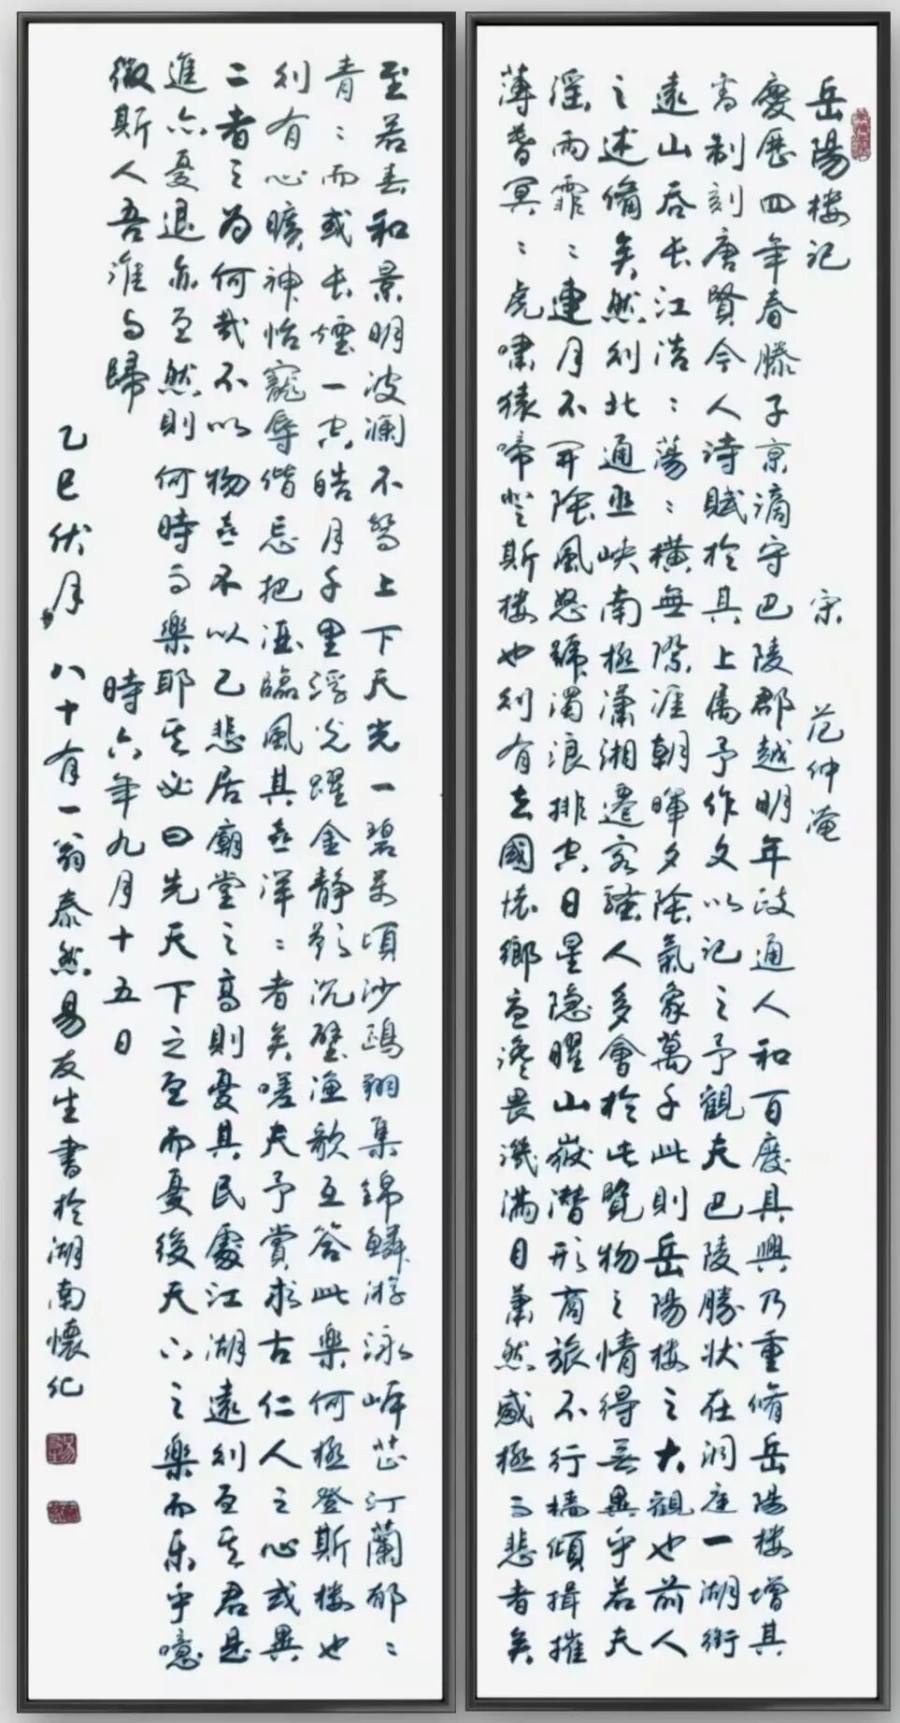 岳陽楼记 宋 范仲淹
慶歷四年春滕子京謫守巴陵郡越明年政通人和百廢具興乃重脩岳陽楼增其
舊制刻唐賢今人诗賦於其上属予作文以记之予觀夫巴陵勝状在洞庭一湖銜
遠山吞长江浩〻蕩〻橫無際涯朝暉夕陰氣象萬千此則岳陽楼之大觀也前人
之述備矣然则北通巫峡南極瀟湘遷客騷人多會於此覽物之情得無異乎若夫
淫雨霏〻連月不開陰風怒號濁浪排空日星隐曜山嶽潜形商旅不行檣傾揖摧
薄暮冥〻虎嘯猿啼登斯楼也则有去國懷鄉憂讒畏譏满目蕭然感極而悲者矣
至若春和景明波瀾不驚上下天光一碧萬頃沙鷗翔集錦鱗游泳岸芷汀蘭郁〻
青〻而或长煙一空皓月千里浮光躍金静影沉璧漁歌互答此樂何極登斯楼也
则有心曠神怡寵辱偕忘把酒臨風其喜洋〻者矣嗟夫予嘗求古仁人之心或異
二者之为何哉不以物喜不以己悲居廟堂之高則憂其民處江湖遠则憂其君是
進亦憂退亦憂然則何時而樂耶其必曰先天下之憂而憂後天下之樂而乐乎噫
微斯人吾誰与歸 時六年九月十五日
乙巳伏月 八十有一翁泰然易友生書於湖南懷化